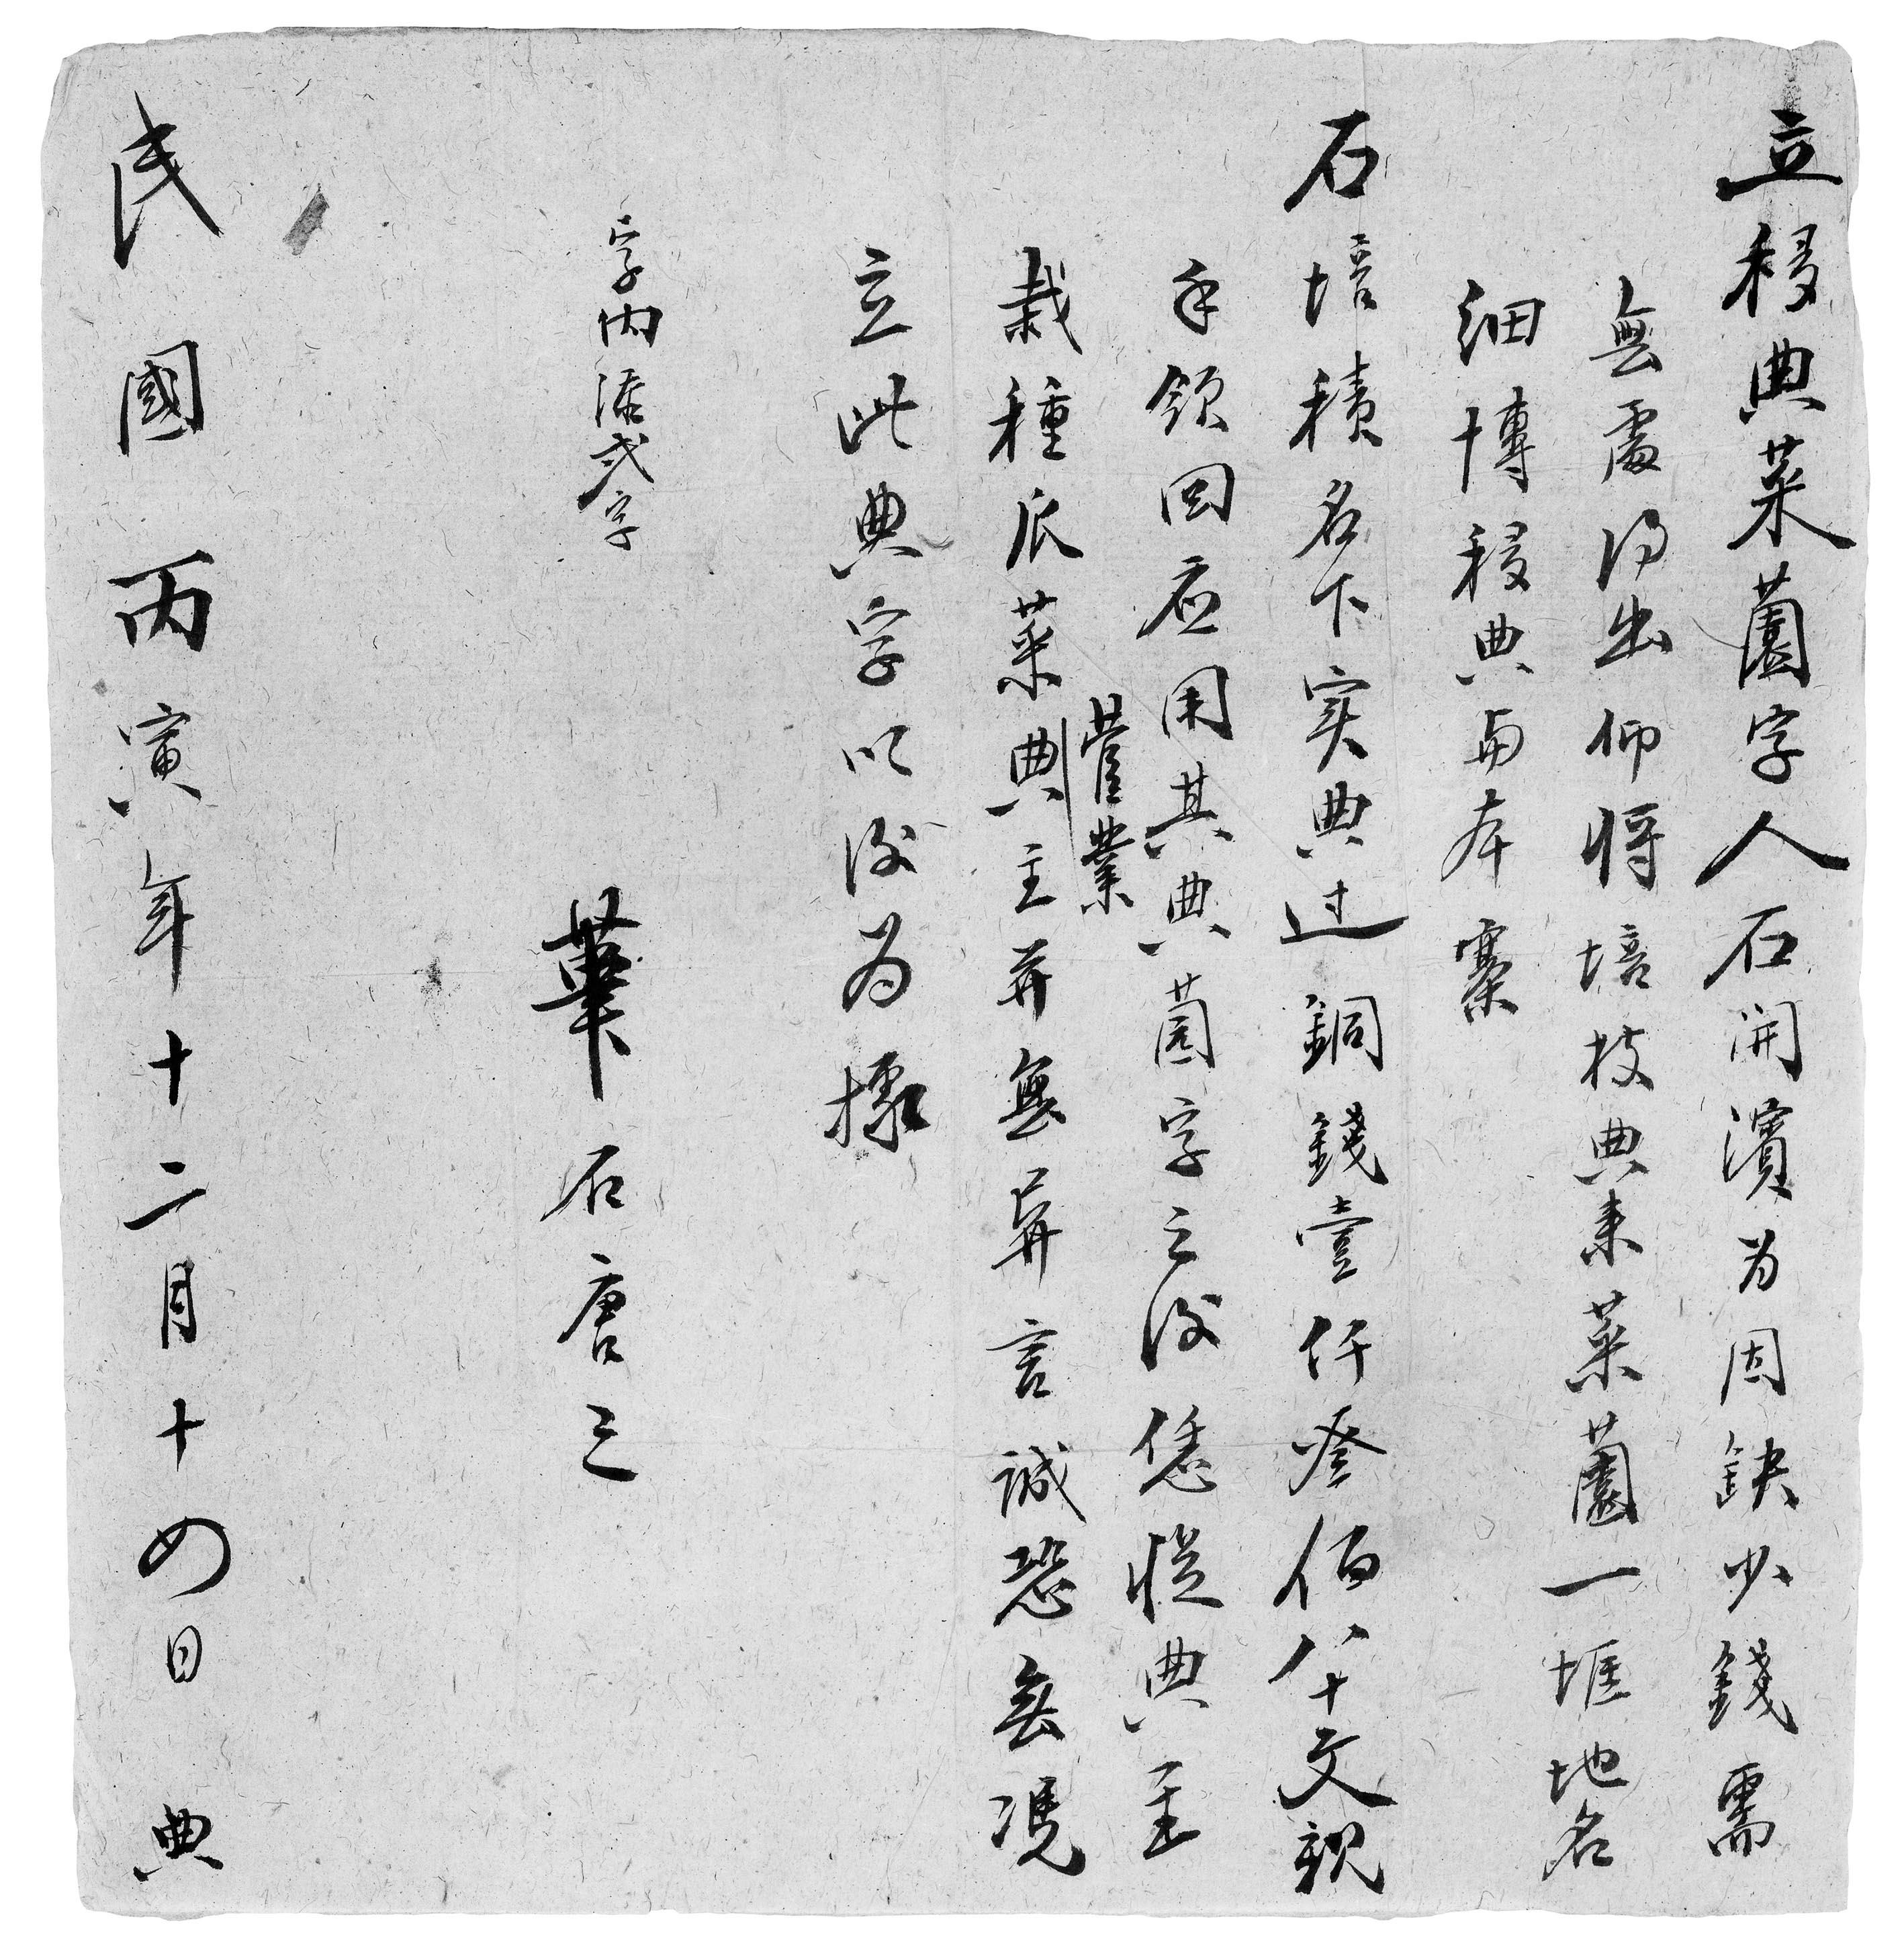 立移典菜薗字人石開濱为因缺少錢需
無處淂出仰将培枝典来菜薗一堐地名
细博移典与本寨
石培積名下实典过銅錢壹仟叁佰八十文親
手領回应用其典薗字之後恁從典主
營業
栽種瓜菜典主并無异言誠恐無凭
立此典字以後为據
字内添弍字
筆石唐三
民國丙寅年十二月十四日典